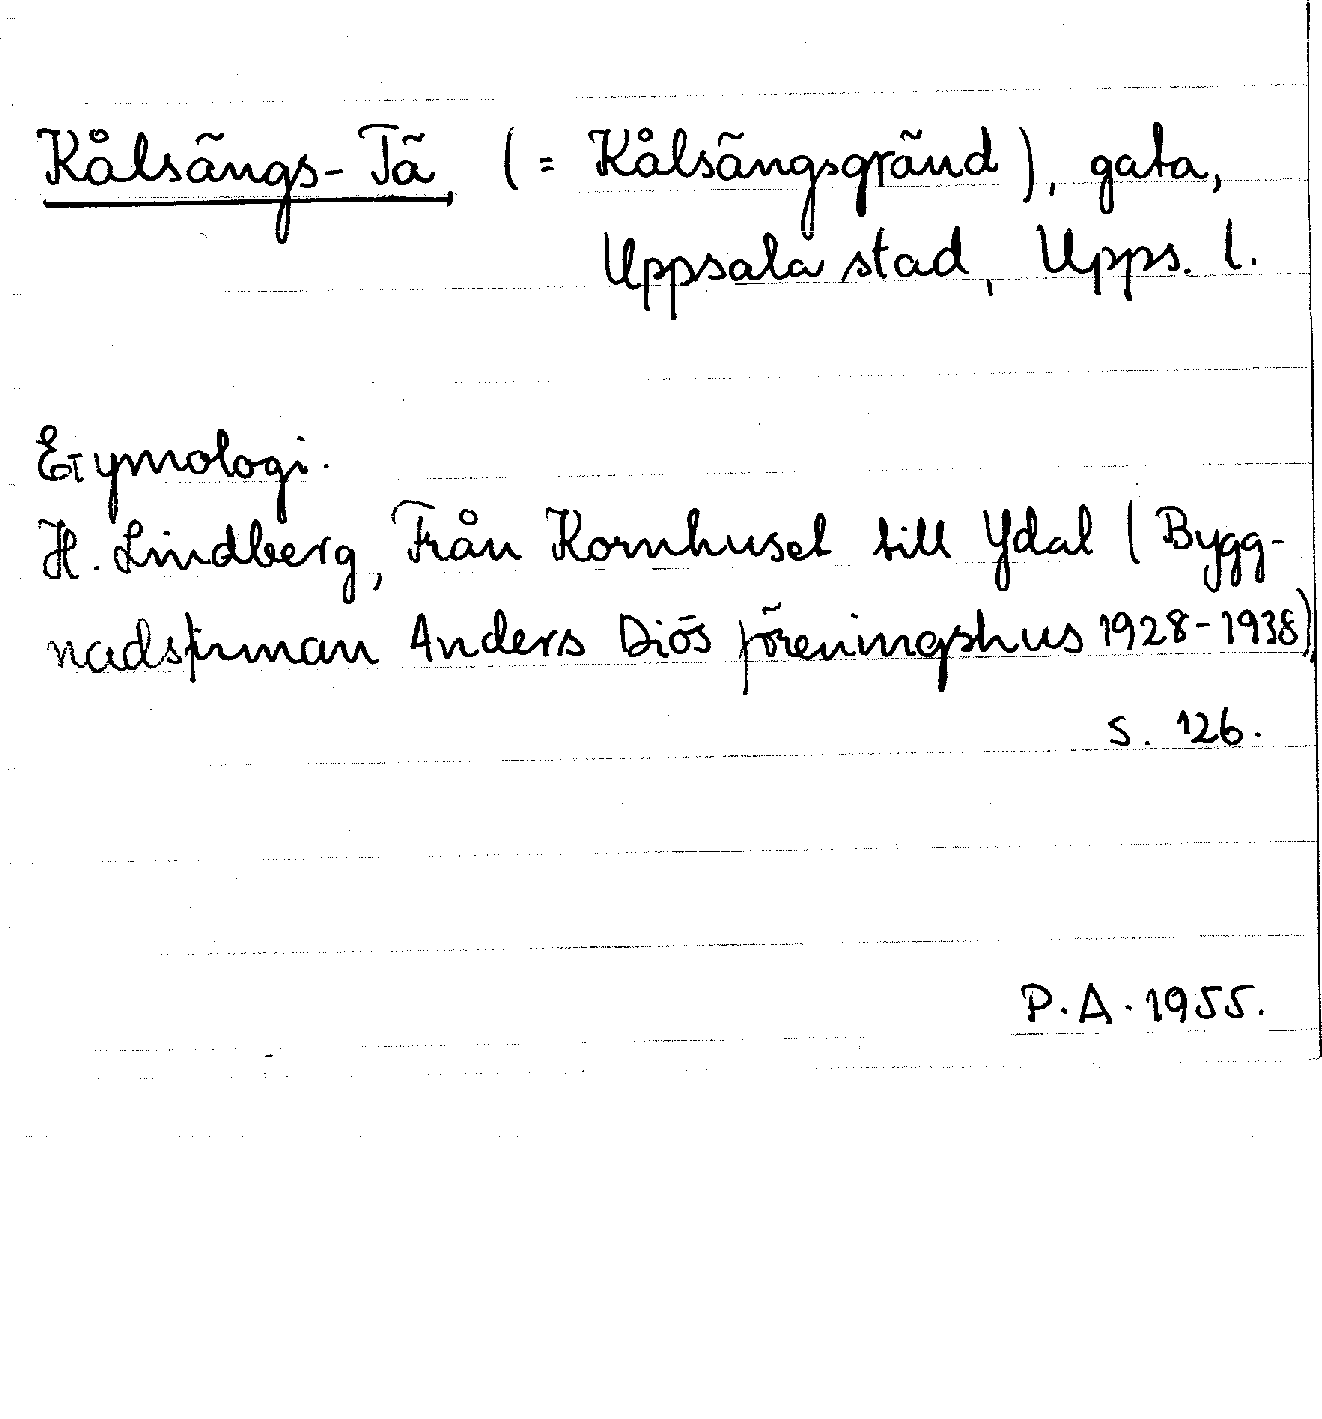 Kålsängs-Tä, (= Kålsängsgränd), gata,
Uppsala stad, Upps. l.
Etymologi.
H. Lindberg, Från Kornhuset till Ydal (Bygg-
nadsfirman Anders Diös föreningshus 1928-1938),
s. 126.
P. A. 1955.